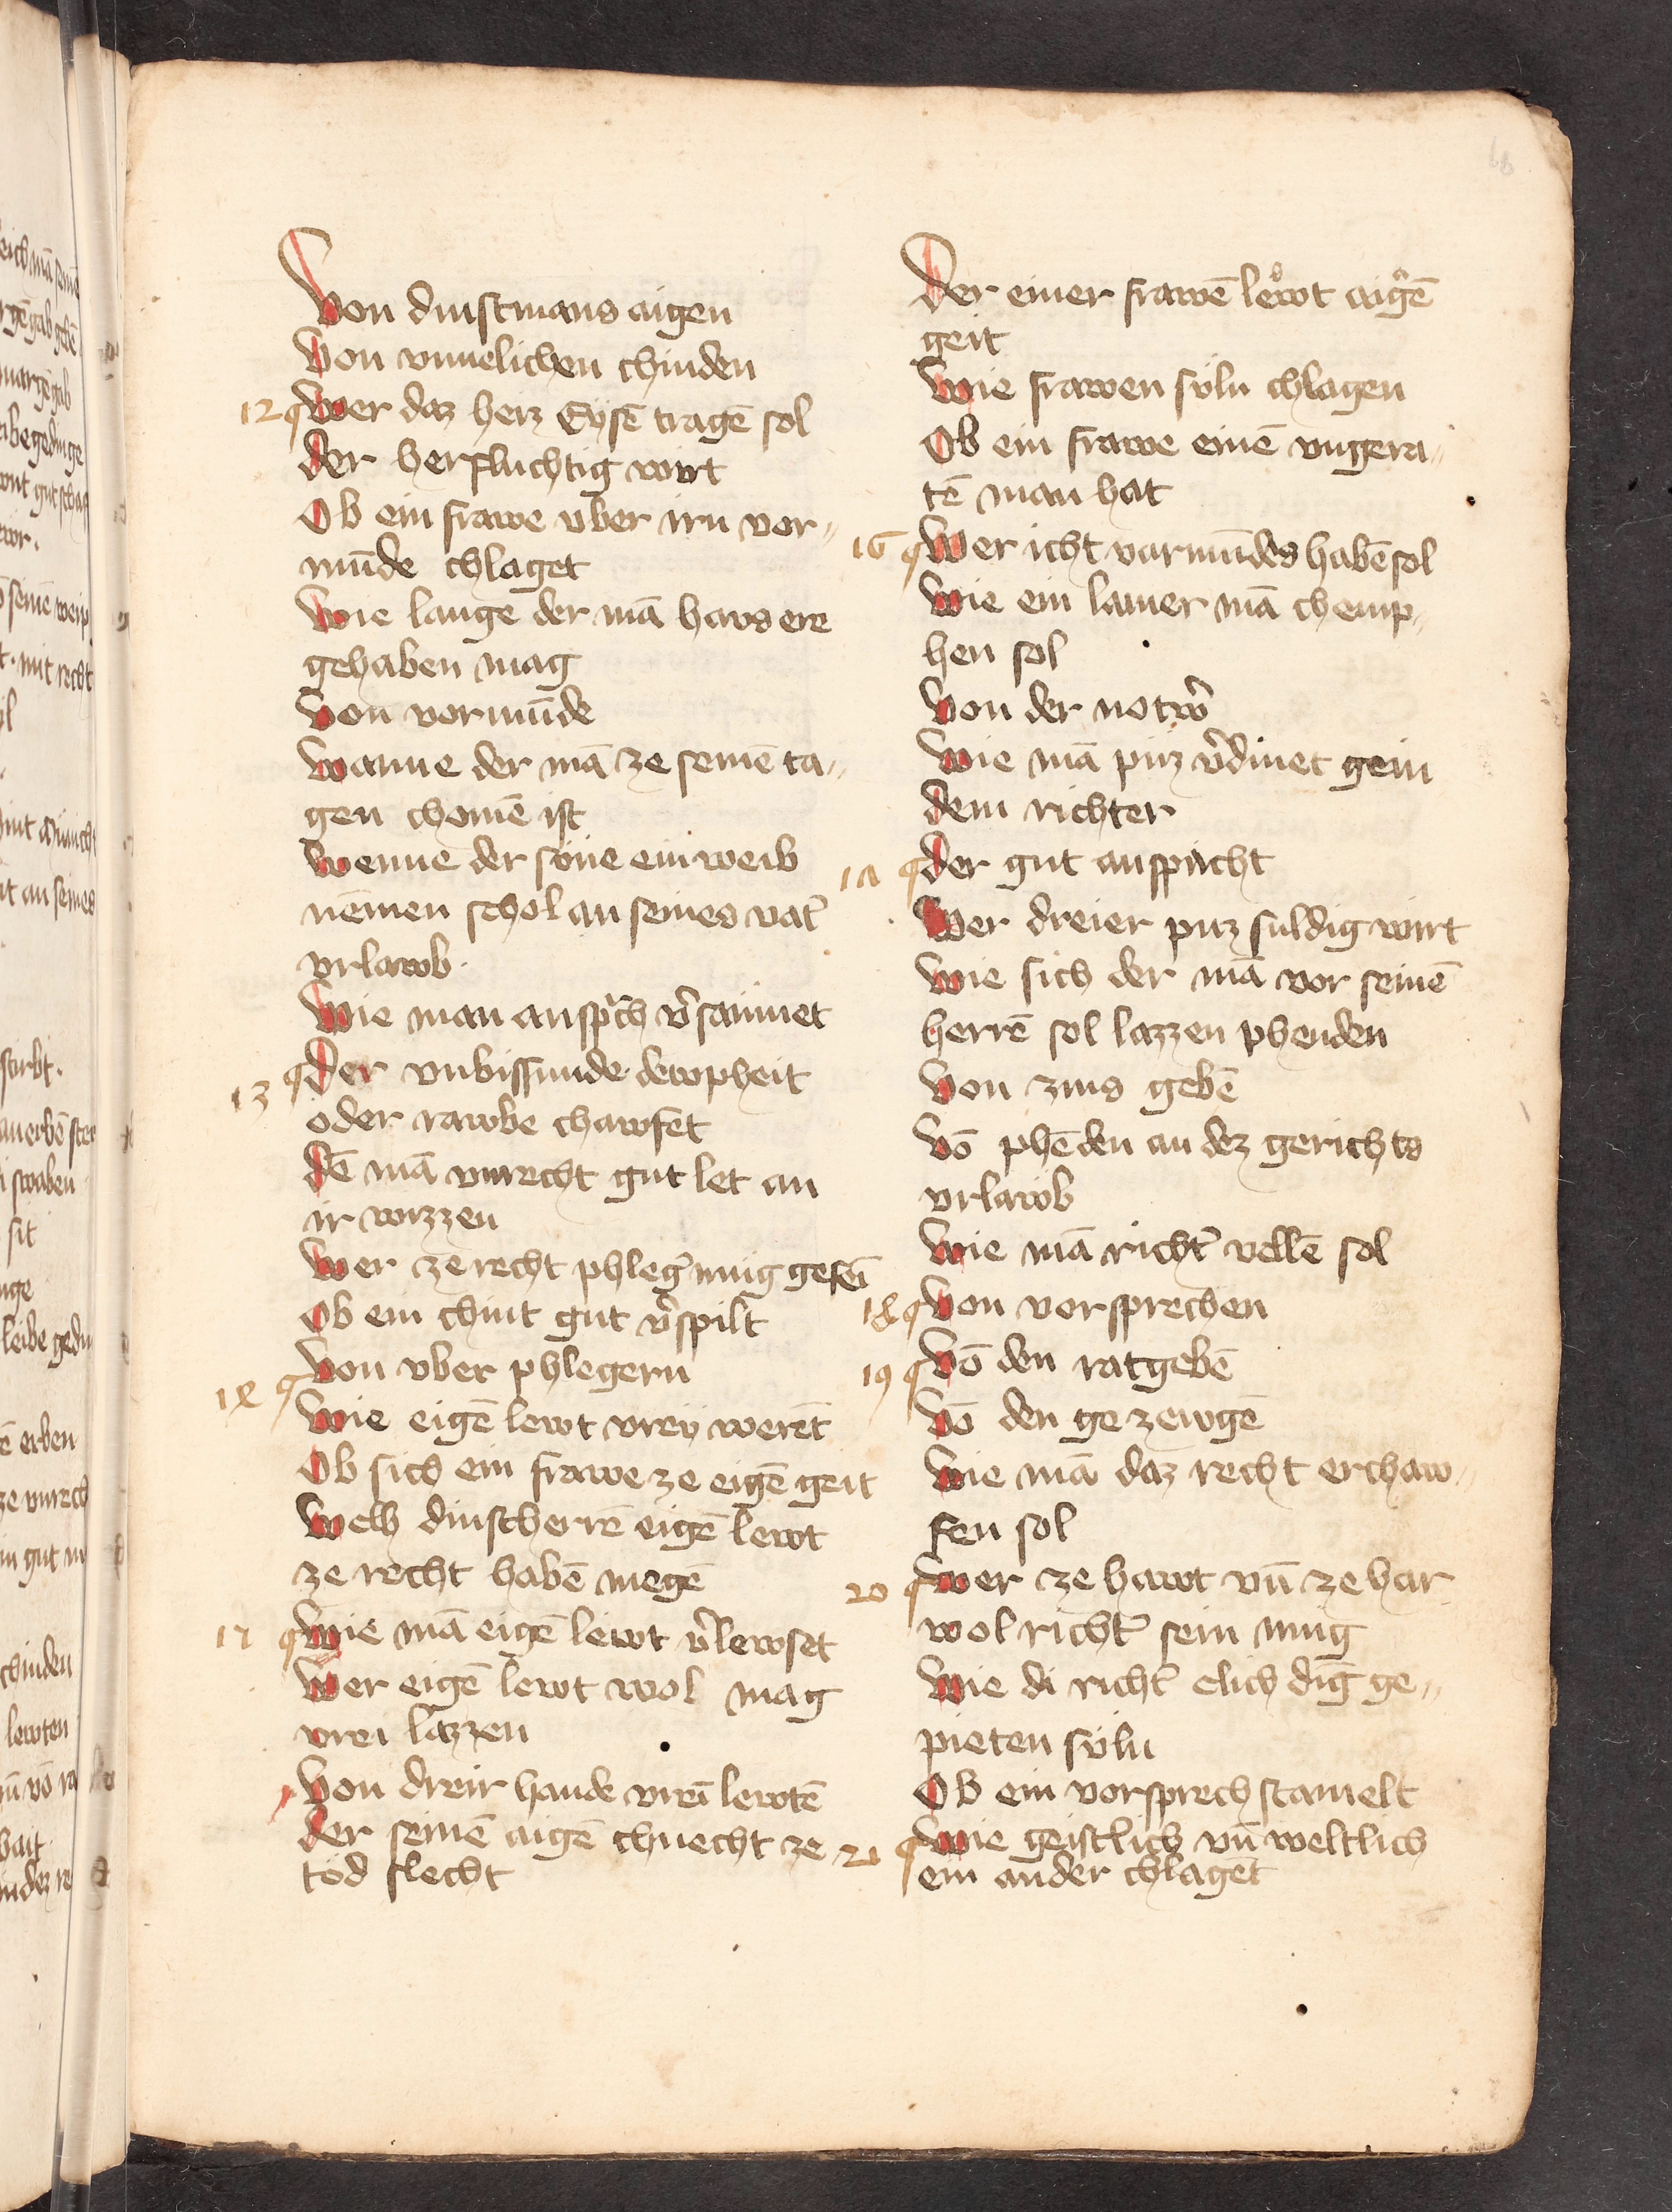 Von dinstmans aigen
Von vnnelichen chinden
12 Wer daz herz Eysē tragē sol
der herfluchtig wirt
Ob ein frawe vber irn vor〃
mūde chlaget
Wie lange der mā haws ere
gehaben mag
Von vormūde
Wanne der mā ze seinē ta〃
gen chomē ist
Wenne der sōne ein weib
nēmen schol an seines vat̄
vrlawb.
Wie man ansp̄ch v̄sawmet
13 Der vnbissunde dewpheit
oder rawbe chawfet
dē mā vnrecht gut let an
ir wizzen
Wer ze recht phleḡ mug gesei
Ob ein chint gut v̄spilt
14 Von vber phlegern
Wie eigē lewt vrey werēt
Ob sich ein frawe ze eigē geit
Welh dinstherrē eigē lewt
ze recht habē megē
15 Wie mā eigē lewt v̄lewset
Wer eigē lewt wol mag
vrei lazzen
Von dreir hande vrei lewtē
der seinē aigē chnecht ze
tod slecht
Der einer frawē lewt aigē
geit
Wie frawen suln chlagen
Ob ein frawe einē vngera〃
tē man hat
16 Wer icht varmūdes habē sol
Wie ein lamer mā chemp〃
hen sol
Von der notw̄
Wie mā puz v̄dinet gein
dem richter
17 der gut anspricht
Wer dreier puz suldig wirt
Wie sich der mā vor seinē
herrē sol lazzen phenden
Von zins gebē
Vō phēden an dez gerichts
vrlawb
Wie mā richt̄ vellē sol
18 Von vorsprechen
19 Vō den ratgebē
Vō den ge zewgē
Wie mā daz recht erchaw〃
fen sol
20 Wer ze hawt vn̄ ze har
wol richt̄ sein mug
Wie di richt̄ elich dīg ge〃
pieten suln
Ob ein vorsprech stamelt
21 Wie geistlich vn̄ weltlich
ein ander chlaget